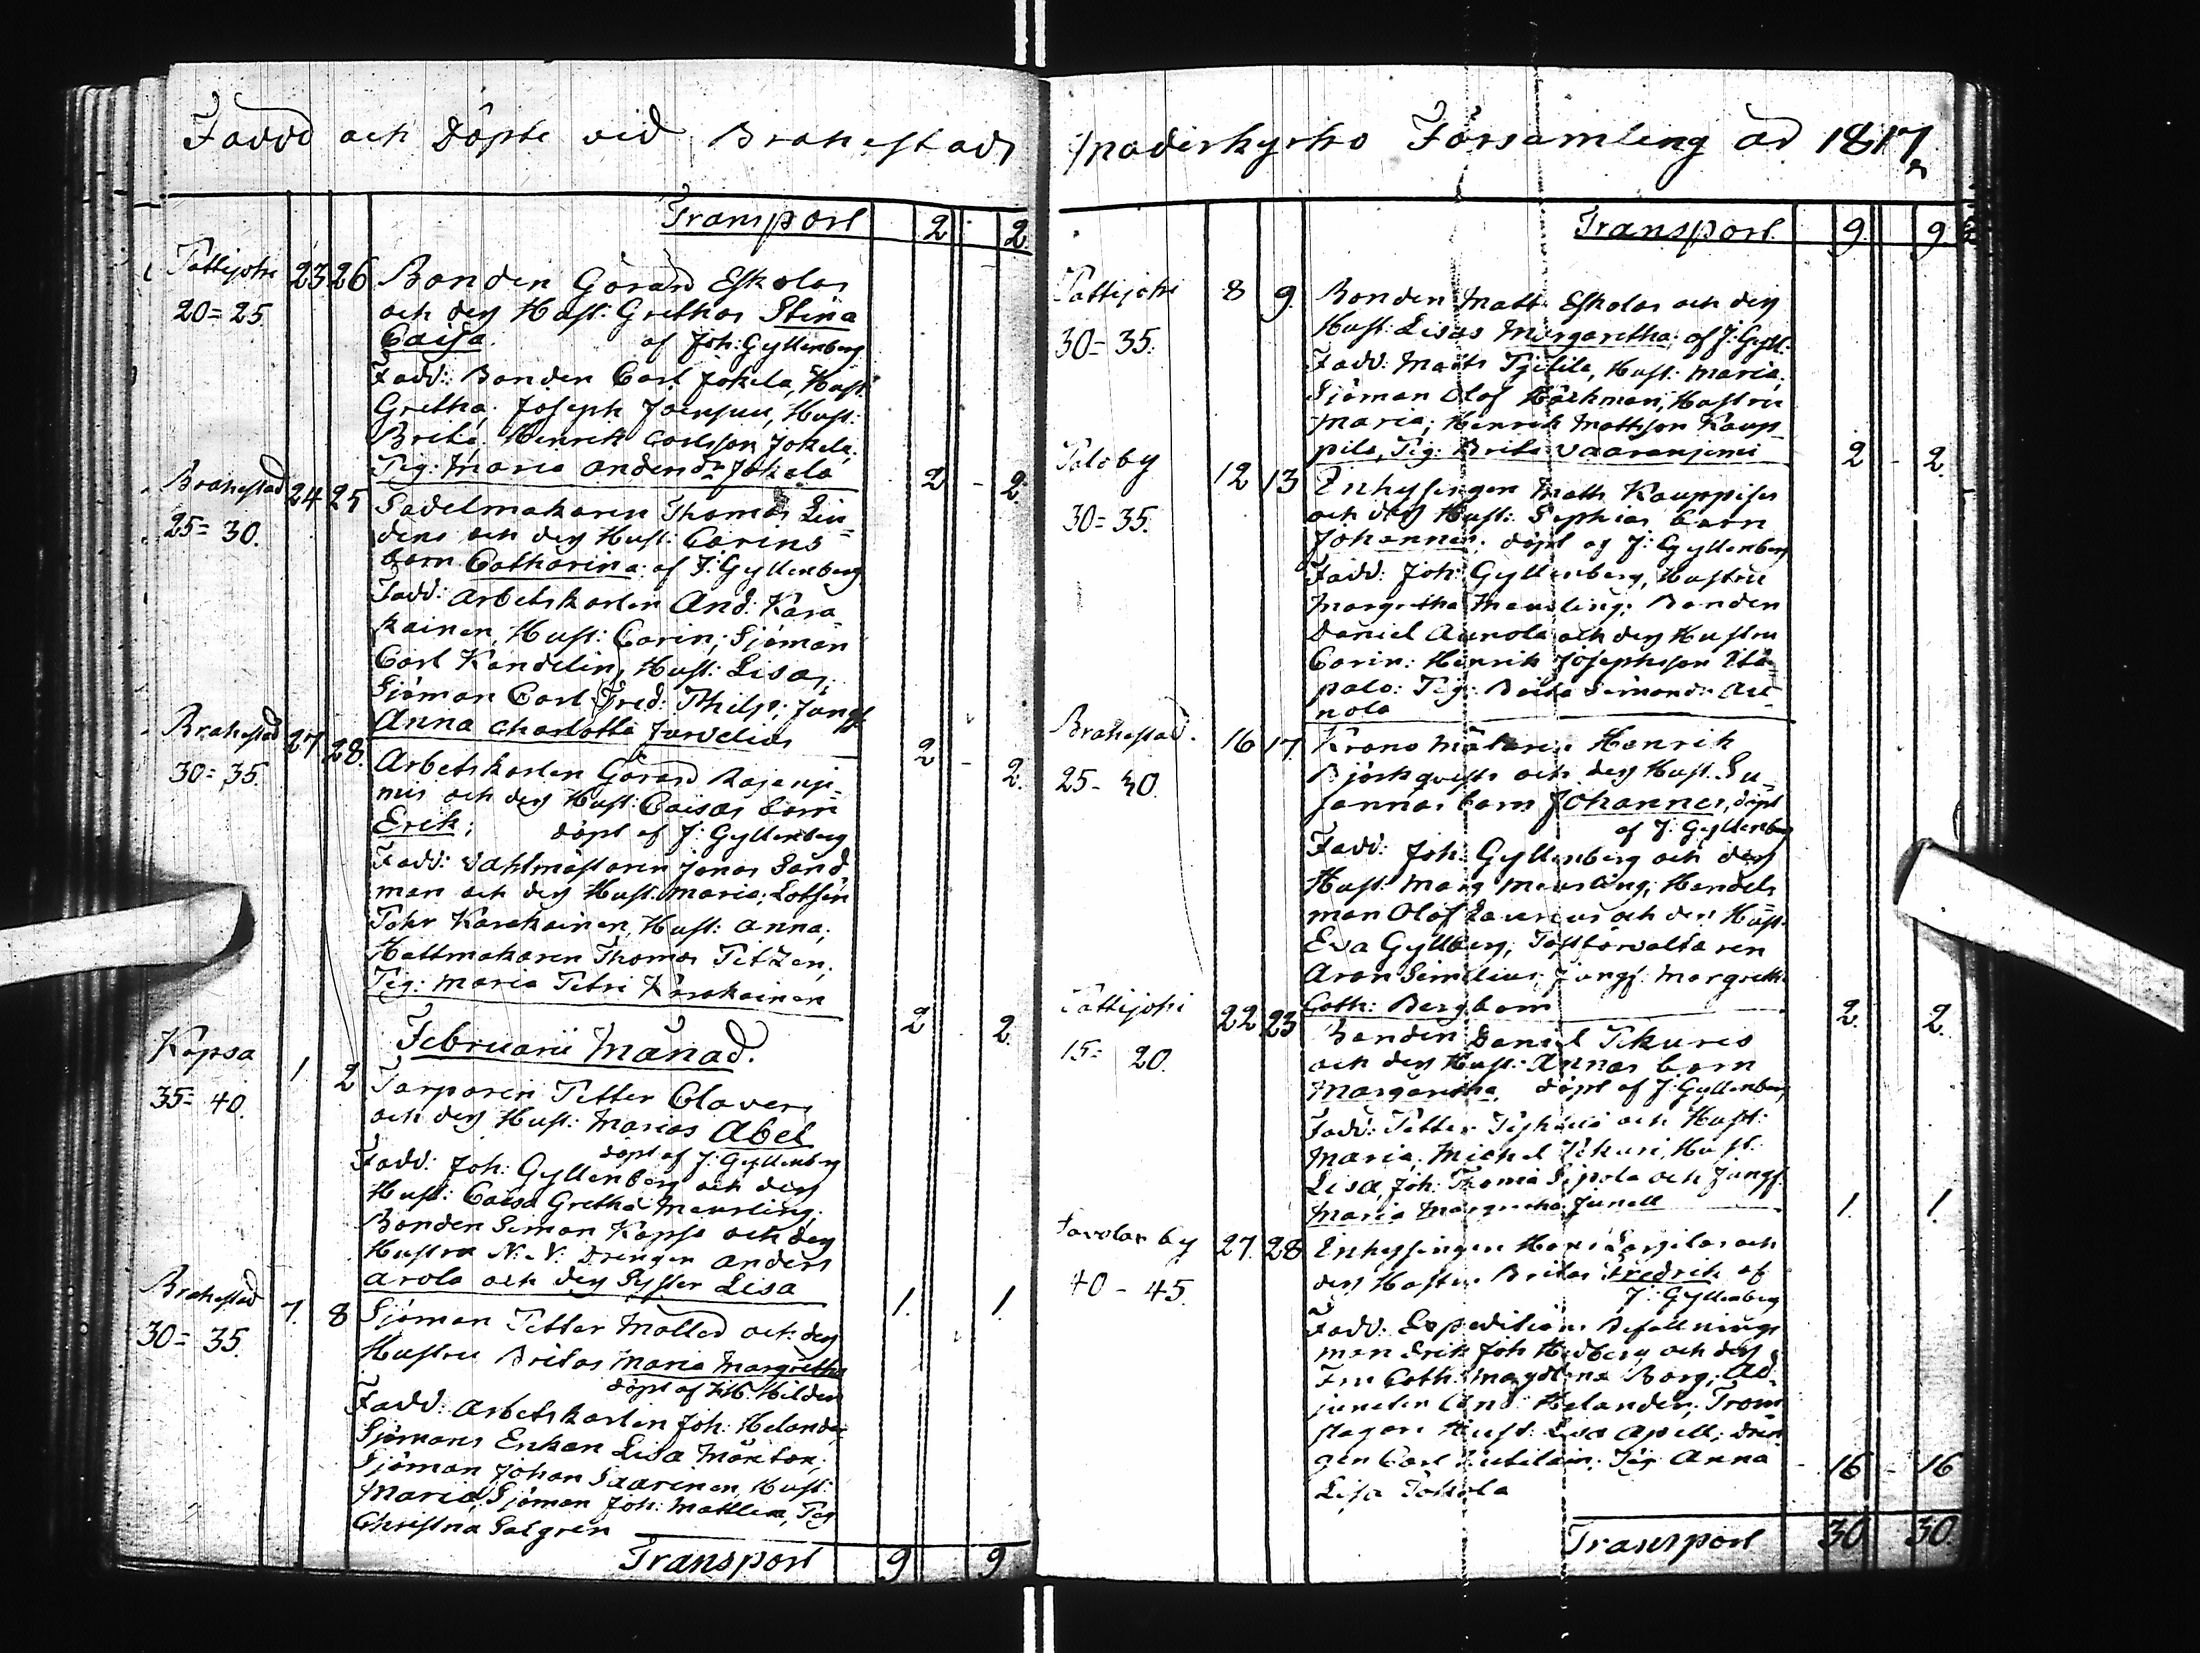 Födde och Döpte vid Brahestads
Transport 2 2
Pattijoki 23 26 Bonden Görand Eskolas
20=25. och dess Hust: Grethas Stina
Caisa. af Joh: Gyllenberg
Fadd: Bonden Carl Jokela, Hust:
Gretha; Joseph Joensuu, Hust:
Brita; Henrik Carlsson Jokela;
Pig: Maria Andersdr Jokela 2 - 2.
Brahestad 24 25 Sadelmakaren Thomas Lin=
25=30. dens och dess Hust: Carins
barn Catharina af J: Gyllenberg
Fadd: Arbetskarlen And: Kara
kainen, Hust: Carin; Sjöman
Carl Kandelin, Hust: Lisa;
Sjöman Carl Fred: Philp; Jungf
Anna Charlotta Jurvelius 2 - 2.
Brahestad 27 28. Arbetskarlen Görand Rajanje
30=35. mis och dess Hust: Caisas barn
Erik; döpt af J: Gyllenberg
Fadd: Vahtmästaren Jonas Sand
man och dess Hust: Maria; Lotsen
Pehr Karakainen, Hust: Anna;
Hattmakaren Thomas Titzen,
Pig: Maria Petri Karakainen 2 2.
Februarii Månad.
Kopsa 1. 2 Torparen Petter Clavers
35=40. och dess Hust: Marias Abel
döpt af J: Gyllenberg
Fadd: Joh: Gyllenberg och dess
Hust: Caisa Gretha Meurling;
Bonden Simon Kopsa och dess
Hustru N: N: Drengen Anders
Arola och dess Syster Lisa 1. 1.
Brahestad 7. 8 Sjöman Petter Molled och dess
30=35. Hustru Britas Maria Margretha
döpt af Hilden
Fadd: Arbetskarlen Joh: Helander
Sjömans Enkan Lisa
Sjöman Johan Saarinen, Hust:
Maria; Sjöman Joh: Matlin, Pig
Christina Salgren
Transport 9 9
moderkyrko Församling år 1817
Transport. 9. 9
Pattijoki 8 9. Bonden Matt: Eskolas och dess
30=35. Hust: Lisas Margaretha; af J: Gyll:
Fadd: Matts Hust: Maria;
Sjöman Olof Häckman, Hustru
Maria; Henrik Mattsson Kaup=
pila, Pig: Brita Vaaraniemi 2 - 2.
Palo by 12 13 Inhysingen Matts Kauppises
30=35. och dess Hust: Sophias barn
Johannes; döpt af J: Gyllenberg
Fadd: Joh: Gyllenberg, Hustru
Margretha Meurling; Bonden
Daniel Aunola och dess Hustru
Carin: Henrik Josephsson Itä=
palo: Pig: Brita Simonsdr Au=
nola
Brahestad. 16 17. Krono Henrik
25-30. Björkqvists och dess Hust: Su=
sannas barn Johannes, döpt
af J: Gyllenberg
Fadd: Joh: Gyllenberg och dess
Hust: Marg Meurling; Handels
man Olof Laurius och dess Hust:
Eva Gyllberg, Postförvaltaren
Aron Simelius; Jungf: Margreth
Cath: Bergbom 2. 2.
Pattijoki 22 23 Bonden Daniel Pekuris
15=20. och dess Hust: Annas barn
Margaretha, döpt af J: Gyllenberg
Fadd: Petter och Hust:
Maria; Michel Pekuri, Hust:
Lisa, Joh: Thoma Sipola och Jungf.
Maria Margretha Junell 1. 1.
Savolax by 27. 28 Inhysingen och
40-45. dess Hustru Britas Fredrik af
J: Gyllenberg
Fadd: Expeditions Befallnings
man Erik Joh Hedberg och dess
Fru Cath: Magdlena Borg; Ad
juncten And: Helander; Trom
slagare Hust: Lisa Apell; Drän
gen Carl Pig Anna - 16 - 16
Lisa
Transport 30 30.